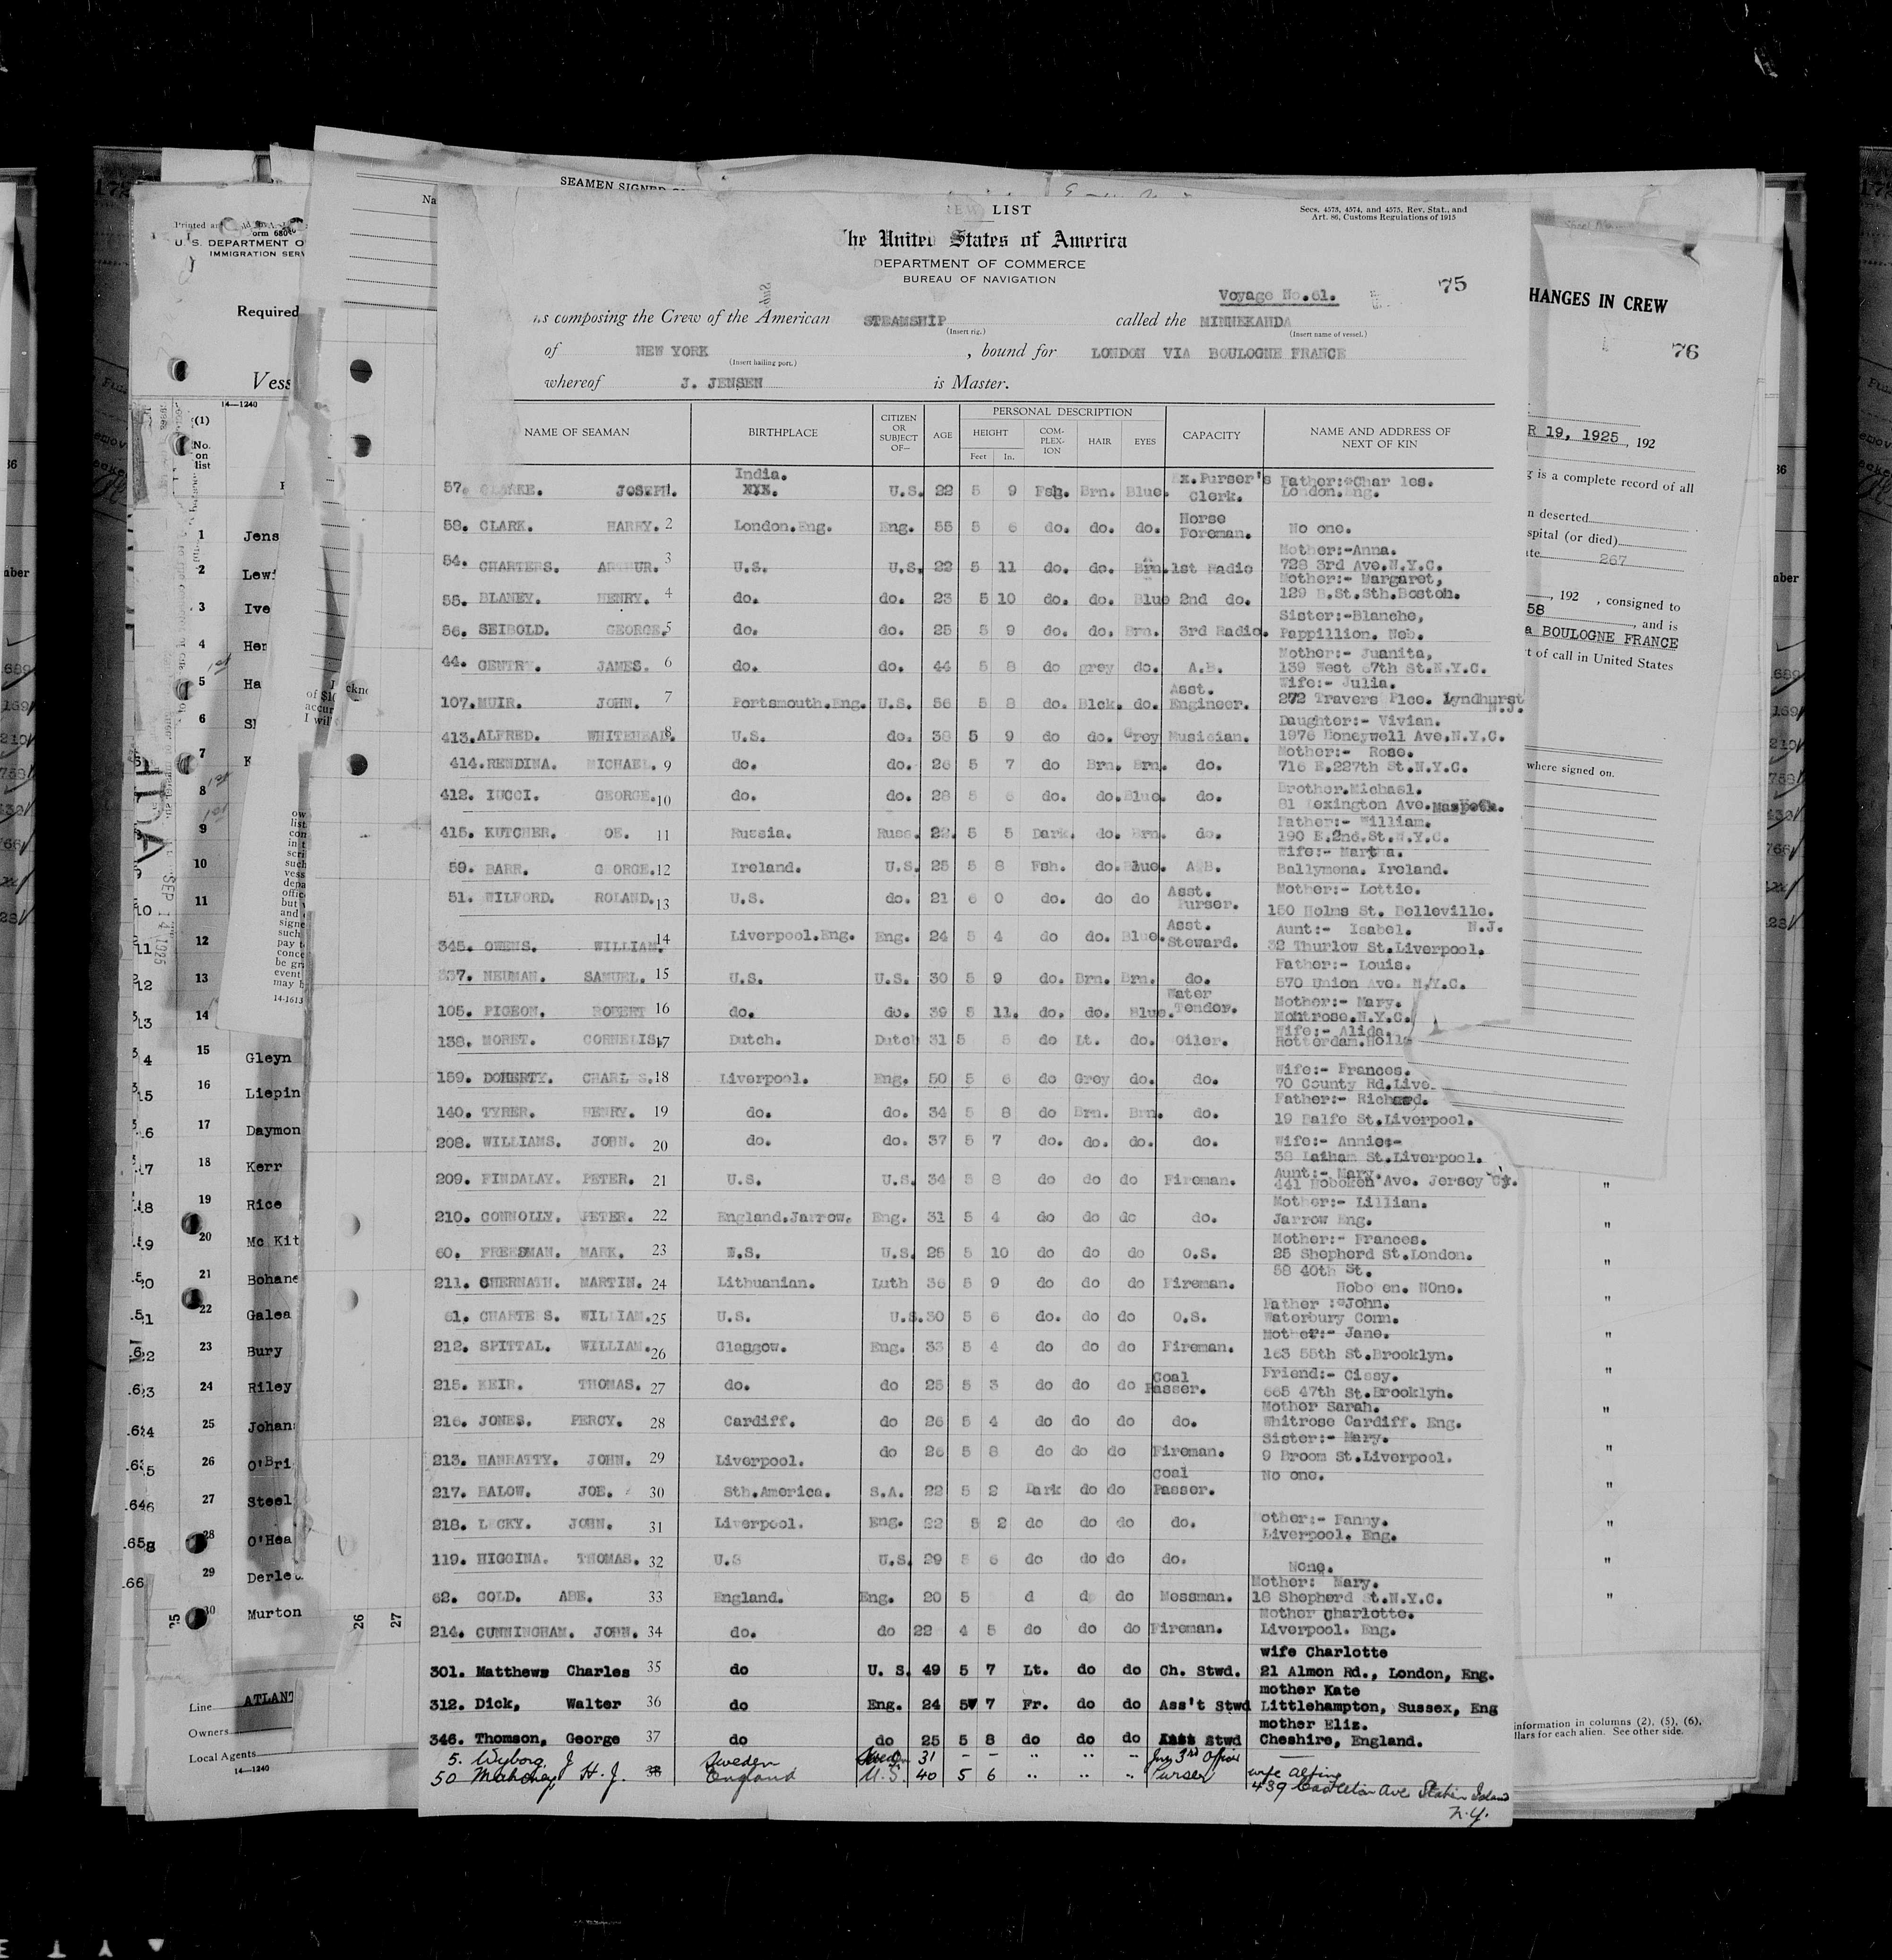 SEAMEN SIGNED
LIST
Secs. 4573, 4574, and 4575, Rev. Stat., and
Art. 86, Customs Regulations of 1915
The United States of America
DEPARTMENT OF COMMERCE
BUREAU OF NAVIGATION
75
Voyage No.61.
composing the Crew of the American STEAMSHIP called the MINNEKAHDA
(Insert rig.) (Insert name of vessel.)
of NEW YORK , bound for LONDON VIA BOULOGNE FRANCE
(Insert hailing port.)
whereof J. JENSEN is Master.
NAME OF SEAMAN BIRTHPLACE CITIZEN OR SUBJECT OF— AGE PERSONAL DESCRIPTION CAPACITY NAME AND ADDRESS OF NEXT OF KIN
HEIGHT COM-PLEX-ION HAIR EYES
Feet In.
57. CLARKE. JOSEPH. India. U.S. 22 5 9 Fsh. Brn. Blue. Ex.Purser's Clerk. Father:-Char les. London.Eng.
58. CLARK. HARRY. 2 London.Eng. Eng. 55 5 6 do. do. do. Horse Foreman. No one.
54. CHARTERS. ARTHUR. 3 U.S. U.S. 22 5 11 do. do. Brn. 1st Radio Mother:-Anna. 728 3rd Ave.N.Y.C.
55. BLANEY. HENRY. 4 do. do. 23 5 10 do. do. Blue 2nd do. Mother:- Margaret, 129 B.St.Sth.Boston.
56. SEIBOLD. GEORGE. 5 do. do. 25 5 9 do. do. Brn. 3rd Radio. Sister:-Blanche, Pappillion. Neb.
44. GENTRY. JAMES. 6 do. do. 44 5 8 do grey do. A.B. Mother:- Juanita, 139 West 67th St.N.Y.C.
107. MUIR. JOHN. 7 Portsmouth.Eng. U.S. 56 5 8 do. Blck. do. Asst. Engineer. Wife:- Julia. 272 Travers Plce. Lyndhurst N.J.
413. ALFRED. WHITEHEAD. 8 U.S. do. 38 5 9 do do. Grey Musician. Daughter:- Vivian. 1976 Honeywell Ave.N.Y.C.
414. RENDINA. MICHAEL. 9 do. do. 26 5 7 do Brn. Brn. do. Mother:- Rose. 716 E.227th St.N.Y.C.
412. IUCCI. GEORGE. 10 do. do. 28 5 6 do. do. Blue. do. Brother.Michael. 81 Lexington Ave.Maspeth.
415. KUTCHER. OE. 11 Russia. Russ. 22. 5 5 Dark. do. Brn. do. Father:- William. 190 E.2nd.St.N.Y.C.
59. BARR. GEORGE. 12 Ireland. U.S. 25 5 8 Fsh. do. Blue. A.B. Wife:- Martha. Ballymena. Ireland.
51. WILFORD. ROLAND. 13 U.S. do. 21 6 0 do. do do Asst. Purser. Mother:- Lottie. 150 Holms St. Belleville. N.J.
345. OWENS. WILLIAM. 14 Liverpool.Eng. Eng. 24 5 4 do do. Blue. Asst. Steward. Aunt:- Isabel. 32 Thurlow St.Liverpool.
337. NEUMAN. SAMUEL. 15 U.S. U.S. 30 5 9 do. Brn. Brn. do. Father:- Louis. 570 Union Ave. N.Y.C.
105. PIGEON. ROBERT 16 do. do. 39 5 11. do. do. Blue. Water Tender. Mother:- Mary. Montrose.N.Y.C.
138. MORET. CORNELIS. 17 Dutch. Dutch 31 5 5 do Lt. do. Oiler. Wife:- Alida. Rotterdam.Holla
159. DOHERTY. CHARLES. 18 Liverpool. Eng. 50 5 6 do Grey do. do. Wife:- Frances. 70 County Rd.Live.
140. TYRER. HENRY. 19 do. do. 34 5 8 do Brn. Brn. do. Father:- Richard. 19 Balfe St.Liverpool.
208. WILLIAMS. JOHN. 20 do. do. 37 5 7 do. do. do. do. Wife:- Annie:- 38 Latham St.Liverpool.
209. FINDALAY. PETER. 21 U.S. U.S. 34 5 8 do do do Fireman. Aunt:- Mary. 441 Hoboken Ave. Jersey Cy.
210. CONNOLLY. PETER. 22 England.Jarrow. Eng. 31 5 4 do do do do. Mother:- Lillian. Jarrow Eng.
60. FREESMAN. MARK. 23 U.S. U.S. 25 5 10 do do do O.S. Mother:- Frances. 25 Shepherd St.London.
211. CHERNATH. MARTIN. 24 Lithuanian. Luth 36 5 9 do do do Fireman. 58 40th St. Hobo en. NOne.
61. CHARTE S. WILLIAM. 25 U.S. U.S. 30 5 6 do. do do O.S. Father :-John. Waterbury Conn.
212. SPITTAL. WILLIAM. 26 Glasgow. Eng. 33 5 4 do do do Fireman. Mother:- Jane. 163 55th St.Brooklyn.
215. KEIR. THOMAS. 27 do. do 25 5 3 do do do Coal Passer. Friend:- Cissy. 665 47th St.Brooklyn.
216. JONES. PERCY. 28 Cardiff. do 26 5 4 do do do do. Mother Sarah. Whitrose Cardiff. Eng.
213. HANRATTY. JOHN. 29 Liverpool. do 26 5 8 do do do Fireman. Sister:- Mary. 9 Broom St.Liverpool.
217. BALOW. JOE. 30 Sth.America. S.A. 22 5 2 Dark do do Coal Passer. No one.
218. LECKY. JOHN. 31 Liverpool. Eng. 22 5 2 do do do do. other:- Fanny. Liverpool. Eng.
119. HIGGINA. THOMAS. 32 U.S U.S. 29 5 6 do do do do. None.
62. GOLD. ABE. 33 England. Eng. 20 5 d d do Messman. Mother: Mary. 18 Shepherd St.N.Y.C.
214. CUNNINGHAM. JOHN. 34 do. do 22 4 5 do do do Fireman. Mother Charlotte. Liverpool. Eng.
301. Matthews Charles 35 do U. S. 49 5 7 Lt. do do Ch. Stwd. wife Charlotte 21 Almon Rd., London, Eng.
312. Dick, Walter 36 do Eng. 24 5 7 Fr. do do Ass't Stwd mother Kate Littlehampton, Sussex, Eng
346. Thomson, George 37 do do 25 5 8 do do do Asst Stwd mother Eliz. Cheshire, England.
5. Wyborg, J Sweden Sweden 31 - - " " " Jun 3rd Officer —
50 Mahoney H. J. 38 England U.S. 40 5 6 " " " Purser wife 439 Castleton Ave Staten Island N.Y.
U.S. DEPARTMENT O
IMMIGRATION SERV
Required
Vess
14—1240
(1)
No. on list
1 Jens
2 Lewi
3 Ive
4 Her
5 Ha
6
7 K
8
9
10
11
12
13
14
15 Gleyn
16 Liepin
17 Daymon
18 Kerr
19 Rice
20 Mc Kit
21 Bohane
22 Galea
23 Bury
24 Riley
25 Johan
26 O'Bri
27 Steel
28 O'Hea
29 Derle
30 Murton
SEP 14 1925
14-1613
25 26 27
Line ATLANT
Owners
Local Agents
14—1240
HANGES IN CREW
76
R 19, 1925, 192
g is a complete record of all
n deserted
spital (or died)
267
, 192 , consigned to
58 , and is
a BOULOGNE FRANCE
t of call in United States
where signed on.
information in columns (2), (5), (6),
llars for each alien. See other side.